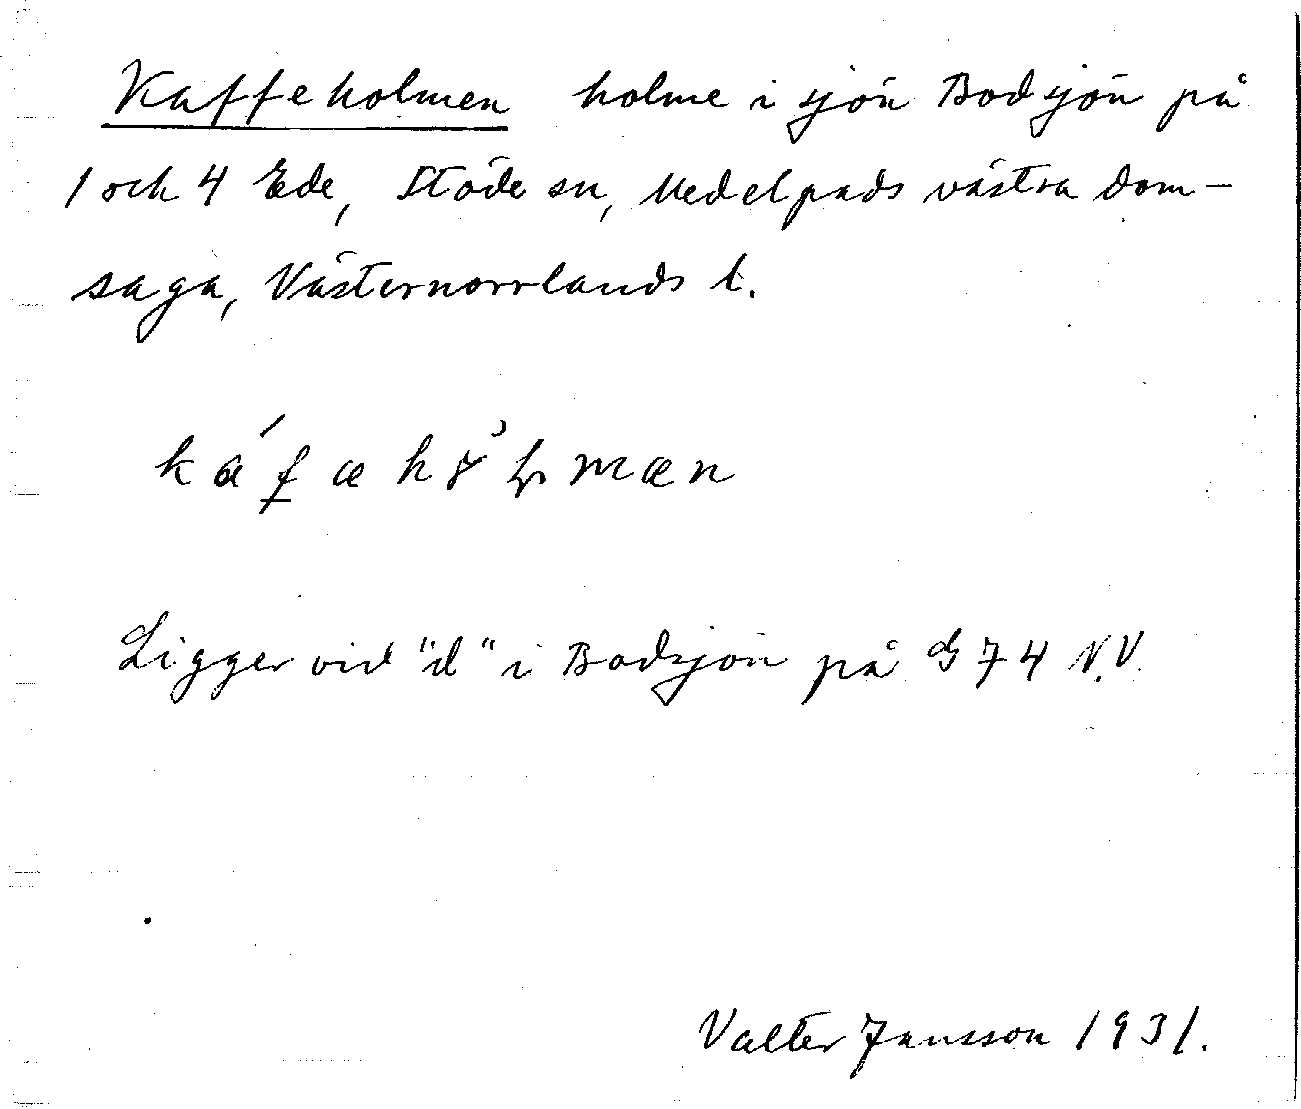 Kaffeholmen holme i sjön Bodsjön på
1 och 4 Ede, Stöde sn, Medelpads västra dom-
saga, Västernorrlands l.
Ligger vid "d" i Bodsjön på G 74 N.V.
Valter Jansson 1931.